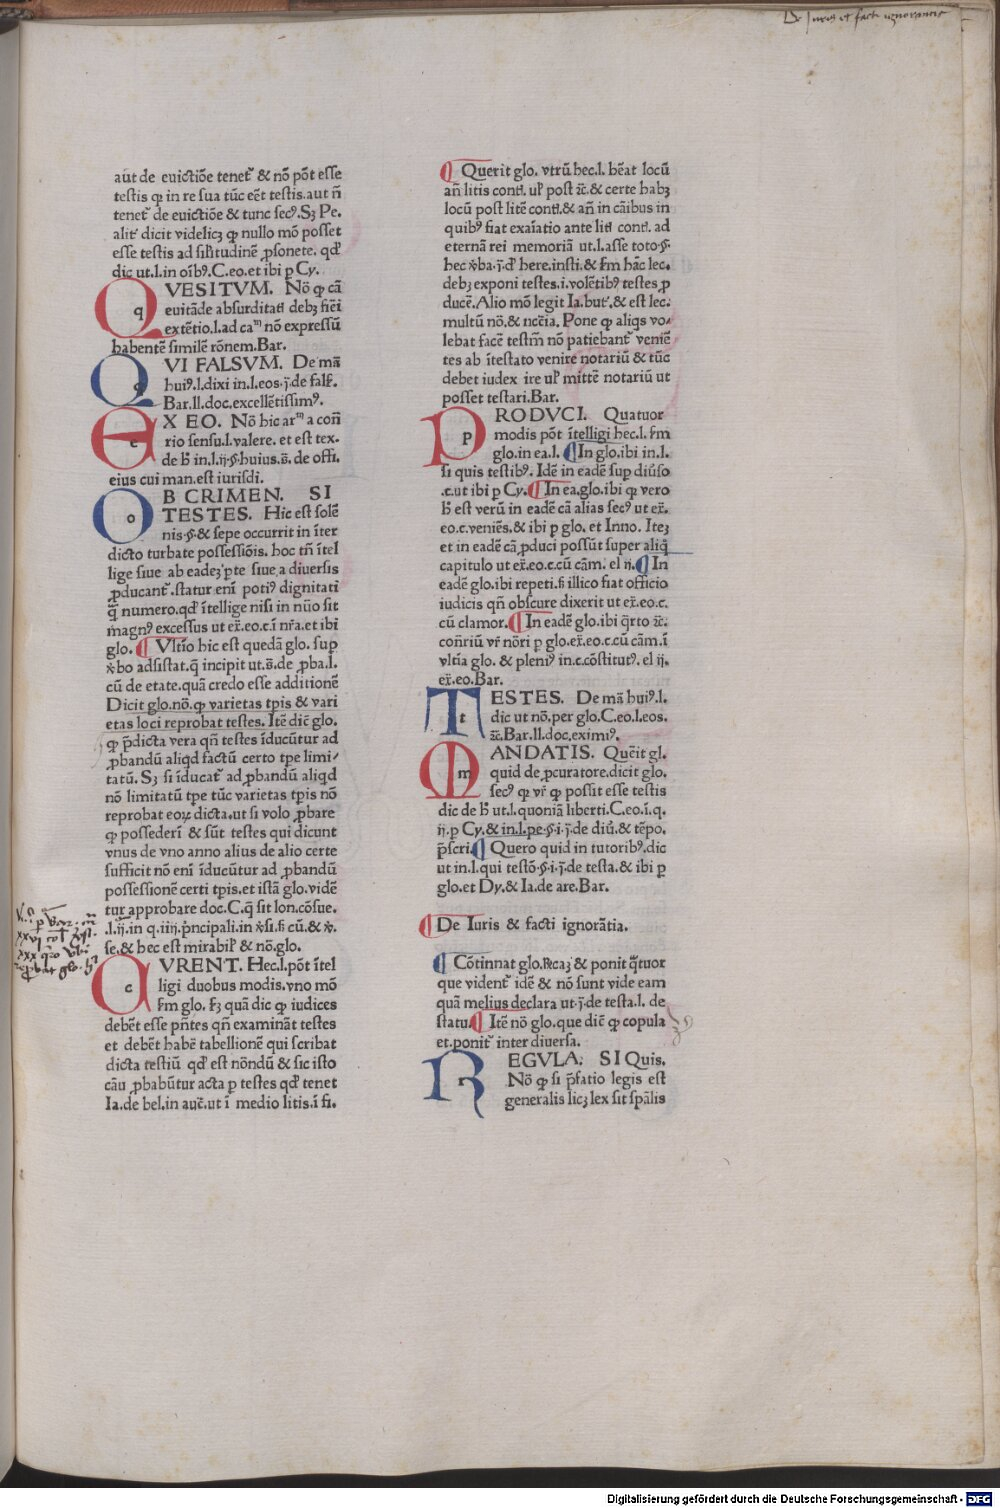 De Juris et facti ignorantia
aūt de euictiōe tenet᷒ & nō pōt esse
testis ꝙ in re sua tūc eēt testis.aut ñ
tenet᷒ de euictiōe & tunc sec⁹.Sꝫ Pe.
alit᷒ dicit videlicꝫ ꝙ nullo mō posset
esse testis ad sil'itudinē ꝑsonete. qd'
dic ut.l.in oīb⁹.C.eo.et ibi p Cy.
QVESITVM. Nō ꝙ cā
euitāde absurditati debꝫ fiēi
extētio.l.ad caᵐ nō expressū
habentē similē rōnem.Bar.
QVI FALSVM. De mā
hui⁹.l.dixi in.l.eos.ȷ̄.de fals̄.
Bar.ll.doc.excellētissim⁹.
EX EO. Nō hic arᵐ a con̄
rio sensu.l.valere. et est tex.
de h̄ in.l.ij.§.huius.s̄. de offi.
eius cui man.est iurisdi.
OB CRIMEN. SI
TESTES. Hic est solē
nis.§.& sepe occurrit in īter
dicto turbate possessiōis. hoc tn̄ ītel
lige siue ab eadeꝫ pte siue a diuersis
ꝓducant᷒.statur eni poti⁹ dignitati
q̄ numero.qd' ītellige nisi in nūo sit
magn⁹ excessus ut ex̄.eo.c.ī nr̄a.et ibi
glo. Vltīo hic est quedā glo. sup
ꝟbo adsistat.q̄ incipit ut.s̄.de ꝓba.l.
cū de etate.quā credo esse additionē
Dicit glo.nō.ꝙ varietas tpis & vari
etas loci reprobat testes. Itē diē glo.
ꝙ p̄dicta vera qn̄ testes īducūtur ad
ꝓbandū aliqd factū certo tpe limi⸗
tatū. Sꝫ si īducat᷒ ad ꝓbandū aliqd
nō limitatū tpe tūc varietas tpis nō
reprobat eoꝝ dicta.ut si volo ꝓbare
ꝙ possederī & sūt testes qui dicunt
vnus de vno anno alius de alio certe
sufficit nō eni īducūtur ad ꝓbandū
possessionē certi tpis.et istā glo.vidē
tur approbare doc.C.q̄ sit lon.cōsue.
.l.ij.in q.iiij.p̄ncipali.in ꝟsi.s̄ cū.& ꝟ.
se.& hec est mirabil' & nō.glo.
AVRENT. Hec.l.pōt ītel
ligi duobus modis.vno mō
s̄m glo. sꝫ quā dic ꝙ iudices
debēt esse pn̄tes qn̄ examināt testes
et debēt habē tabellionē qui scribat
dicta testiū qd' est nōndū & sic isto
cāu ꝓbabūtur acta p testes qd' tenet
Ia.de bel.in auc̄.ut ī medio litis.ī fi.
Querit glo. vtrū hec.l. hēat locū
an̄ litis conti. ul' post ꝛc̄.& certe habꝫ
locū post litē conti.& an̄ in cāibus in
quib⁹ fiat exaīatio ante liti conti. ad
eternā rei memoriā ut.l.asse toto.§.
hec ꝟba.ȷ̄.d' here.insti.& s̄m hāc lec.
debꝫ exponi testes.i.volētib⁹ testes ꝓ
ducē.Alio mō legit Ia.but᷒.& est lec.
multū nō.& ncc̄ia. Pone ꝙ aliqs vo⸗
lebat facē testm̄ nō patiebant᷒ veniē
tes ab ītestato venire notariū & tūc
debet iudex ire ul' mittē notariū ut
posset testari.Bar.
PRODVCI. Quatuor
modis pōt ītelligi hec.l. s̄m
glo.in ea.l. In glo.ibi in.l.
si quis testib⁹. Idē in eadē sup diūso
.c.ut ibi p Cy. In ea.glo.ibi ꝙ vero
h̄ est verū in eadē cā alias sec⁹ ut ex̄.
eo.c.veniēs.& ibi p glo. et Inno. Iteꝫ
et in eadē cā ꝓduci possūt super aliq̄
capitulo ut ex̄.eo.c.cū cām. el ij. In
eadē glo.ibi repeti.s̄ illico fiat officio
iudicis qn̄ obscure dixerit ut ex̄.eo.c.
cū clamor. In eadē glo.ibi q̄rto ꝛc̄.
con̄riū vr̄ nōri p glo.ex̄.eo.c.cū cām.ī
vltīa glo. & pleni⁹ in.c.cōstitut⁹. el ij.
ex̄.eo.Bar.
TESTES. De mā hui⁹.l.
dic ut nō.per glo.C.eo.l.eos.
ꝛc̄.Bar.ll.doc.eximi⁹.
MANDATIS. Querit gl.
quid de ꝓcuratore.dicit glo.
sec⁹ ꝙ vr̄ ꝙ possit esse testis
dic de h̄ ut.l.quoniā liberti.C.eo.ī.q.
ij.p Cy.& in.l.pe.§.i.ȷ̄.de diū.& tēpo.
p̄scri. Quero quid in tutorib⁹.dic
ut in.l.qui testō.§.i.ȷ̄.de testa.& ibi p
glo.et Dy.& Ia.de are.Bar.
De Iuris & facti ignorātia.
Cōtinnat glo.Rēcaꝫ & ponit q̄tuor
que vident᷒ idē & nō sunt vide eam
quā melius declara ut.ȷ̄.de testa.l. de
statu. Itē nō glo.que diē ꝙ copula
et.ponit᷒ inter diuersa.
REGVLA. SI Quis.
Nō ꝙ si p̄fatio legis est
generalis licꝫ lex sit spālis
Digitalisierung gefördert durch die Deutsche Forschungsgemeinschaft - DFG